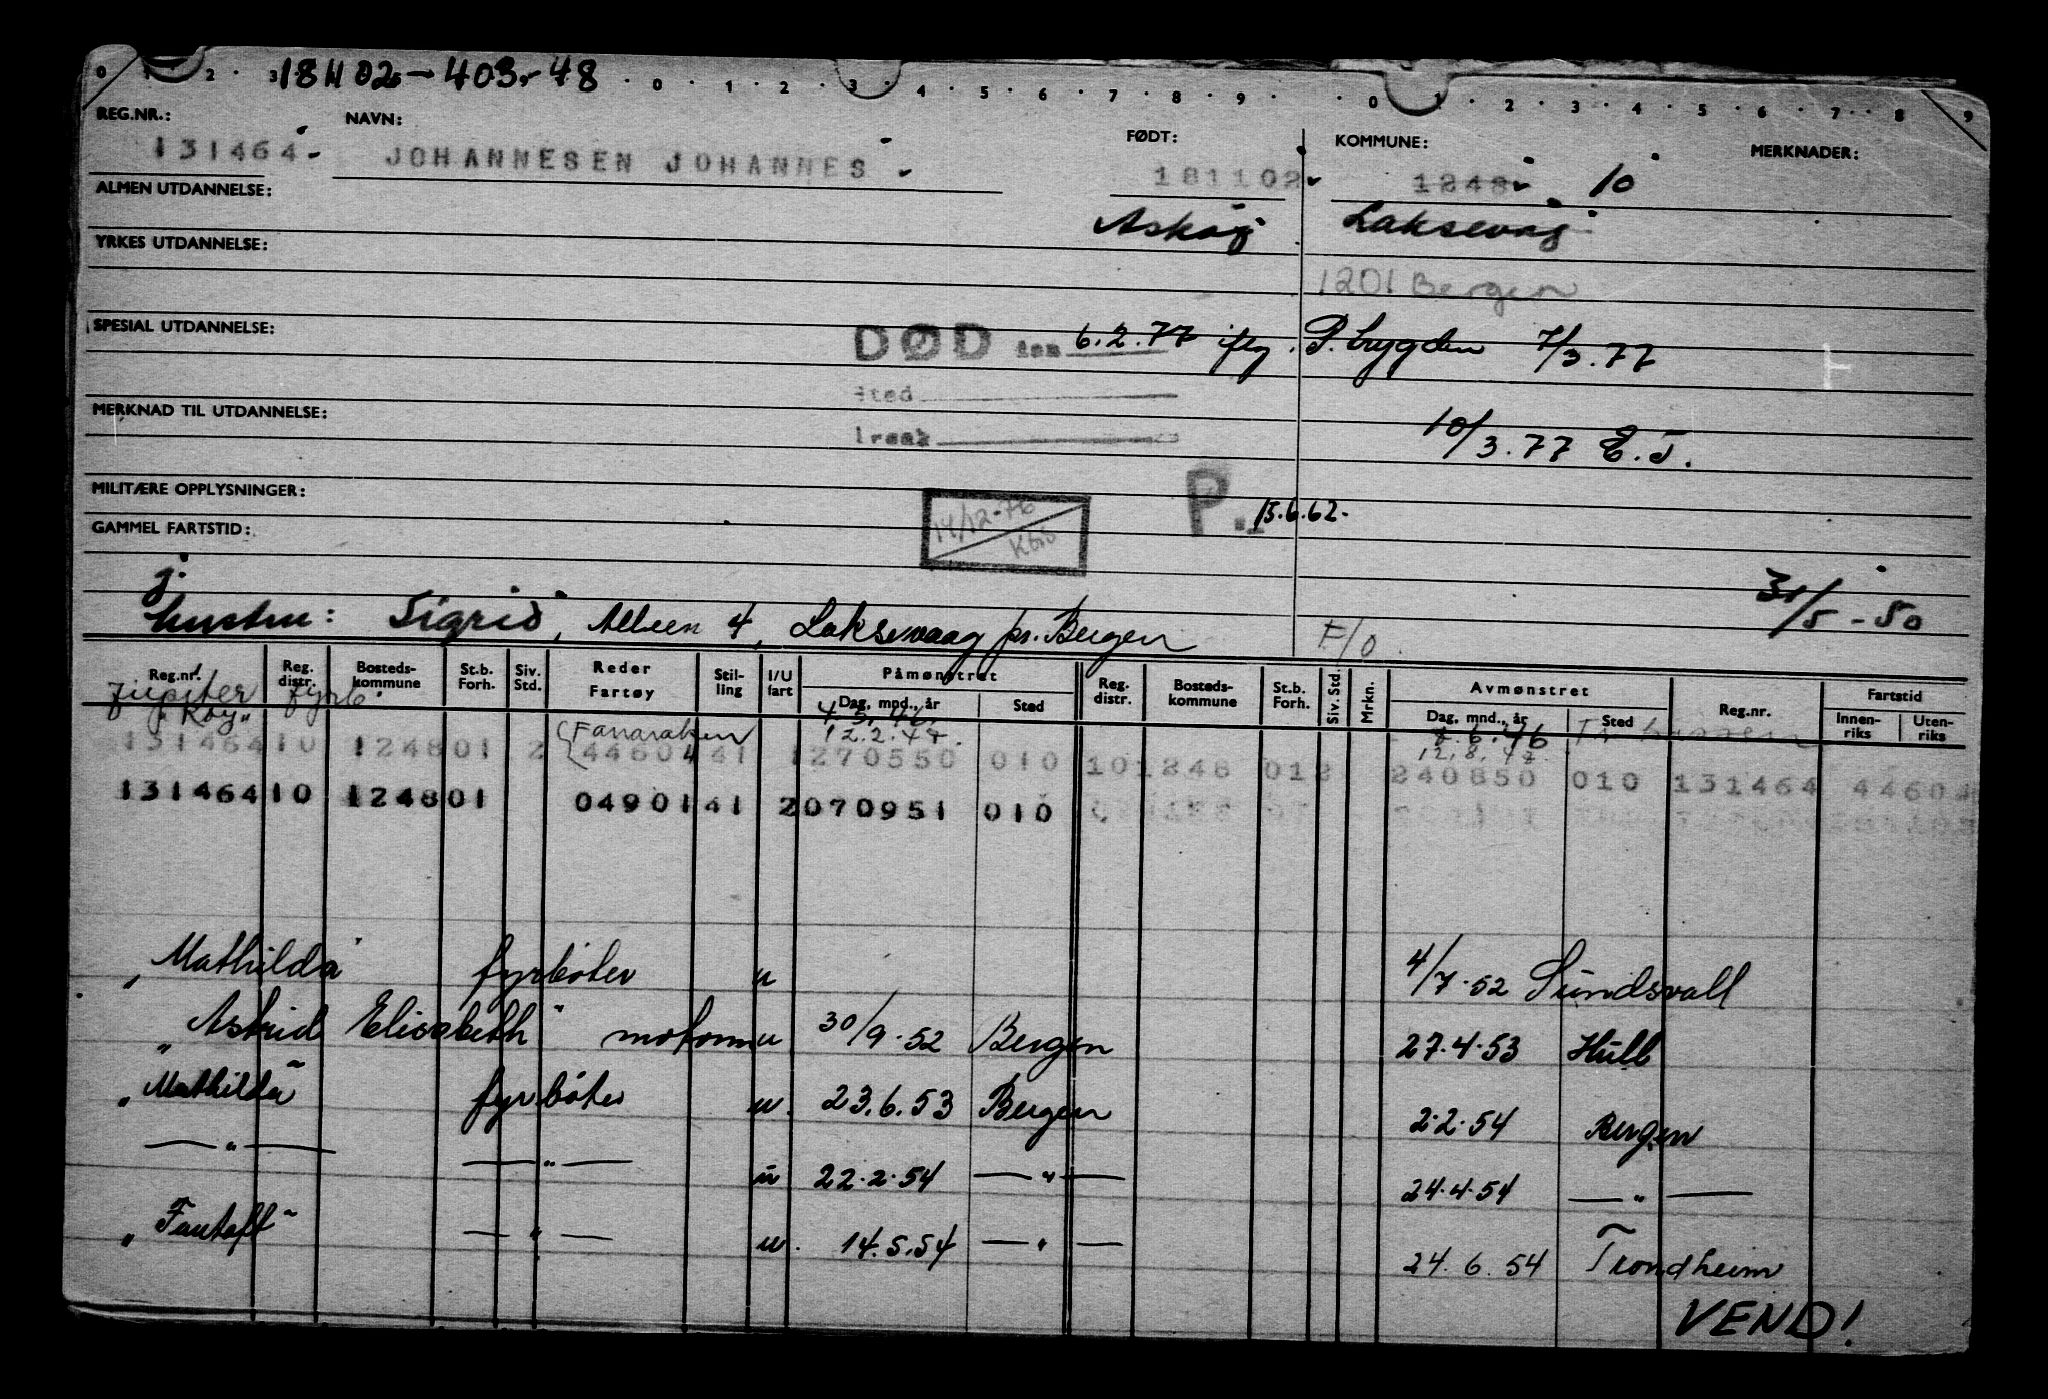 0 1 2 3 18H02-403-48 0 1 2 3 4 5 6 7 8 9 0 1 2 3 4 5 6 7 8 9
REG.NR.: NAVN: FØDT: KOMMUNE: MERKNADER:
131464 JOHANNESEN JOHANNES 181102 1248 10
ALMEN UTDANNELSE: Askøy Laksevåg
YRKES UTDANNELSE:
1201 Bergen
SPESIAL UTDANNELSE: DØD den 6.2.77 iflg. P. trygden 7/3.77
sted
MERKNAD TIL UTDANNELSE:
årsak 10/3.77 E.J.
MILITÆRE OPPLYSNINGER:
14/12-76 P. 15.6.62.
GAMMEL FARTSTID:
j.
hustru: Sigrid, Alleen 4, Laksevaag pr. Bergen F/O. 31/5-50
Reg.nr. Reg. distr. Bosteds- kommune St.b. Forh. Siv. Std. Reder Fartøy Stil- ling I/U fart Påmønstret Dag, mnd., år Sted Reg. distr. Bosteds- kommune St.b. Forh. Siv. Std. Mrkn. Avmønstret Dag, mnd., år Sted Reg.nr. Fartstid Innen- riks Uten- riks
Jupiter fyrb. 4.5.46. 7.6.46
Fanaraken 12.2.48. 12.8.48
131464 10 1248 01 2 44604 41 1 270550 010 10 1248 01 2 240850 010 131464 44604
131464 10 1248 01 04901 41 2 070951 010
"Mathilda" fyrbøter u 4/7.52 Sundsvall
"Astrid Elisabeth" motorm u 30/9.52 Bergen 27.4.53 Hull
"Mathilda" fyrbøter u. 23.6.53 Bergen 2.2.54 Bergen
— " — — " — u 22.2.54 — " — 24.4.54 — " —
"Fantoft" — " — u. 14.5.54 — " — 24.6.54 Trondheim
VEND!